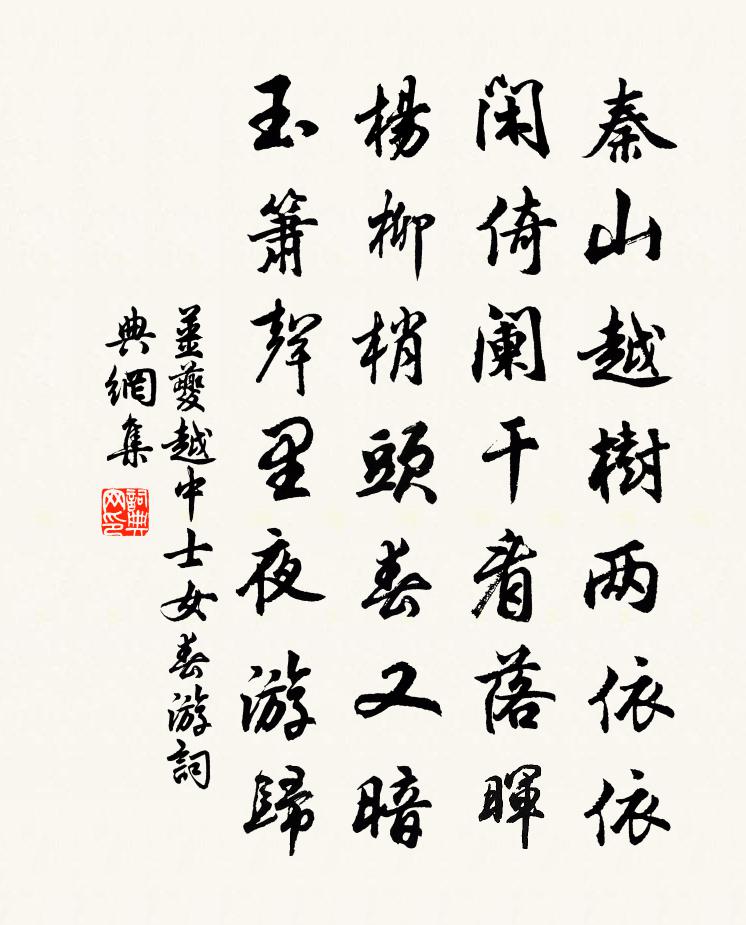 秦山越樹两依依
閑倚闌干看落暉
楊柳梢頭春又暗
玉簫聲里夜游歸
姜夔越中士女春游詞
典網集
詞典
网印